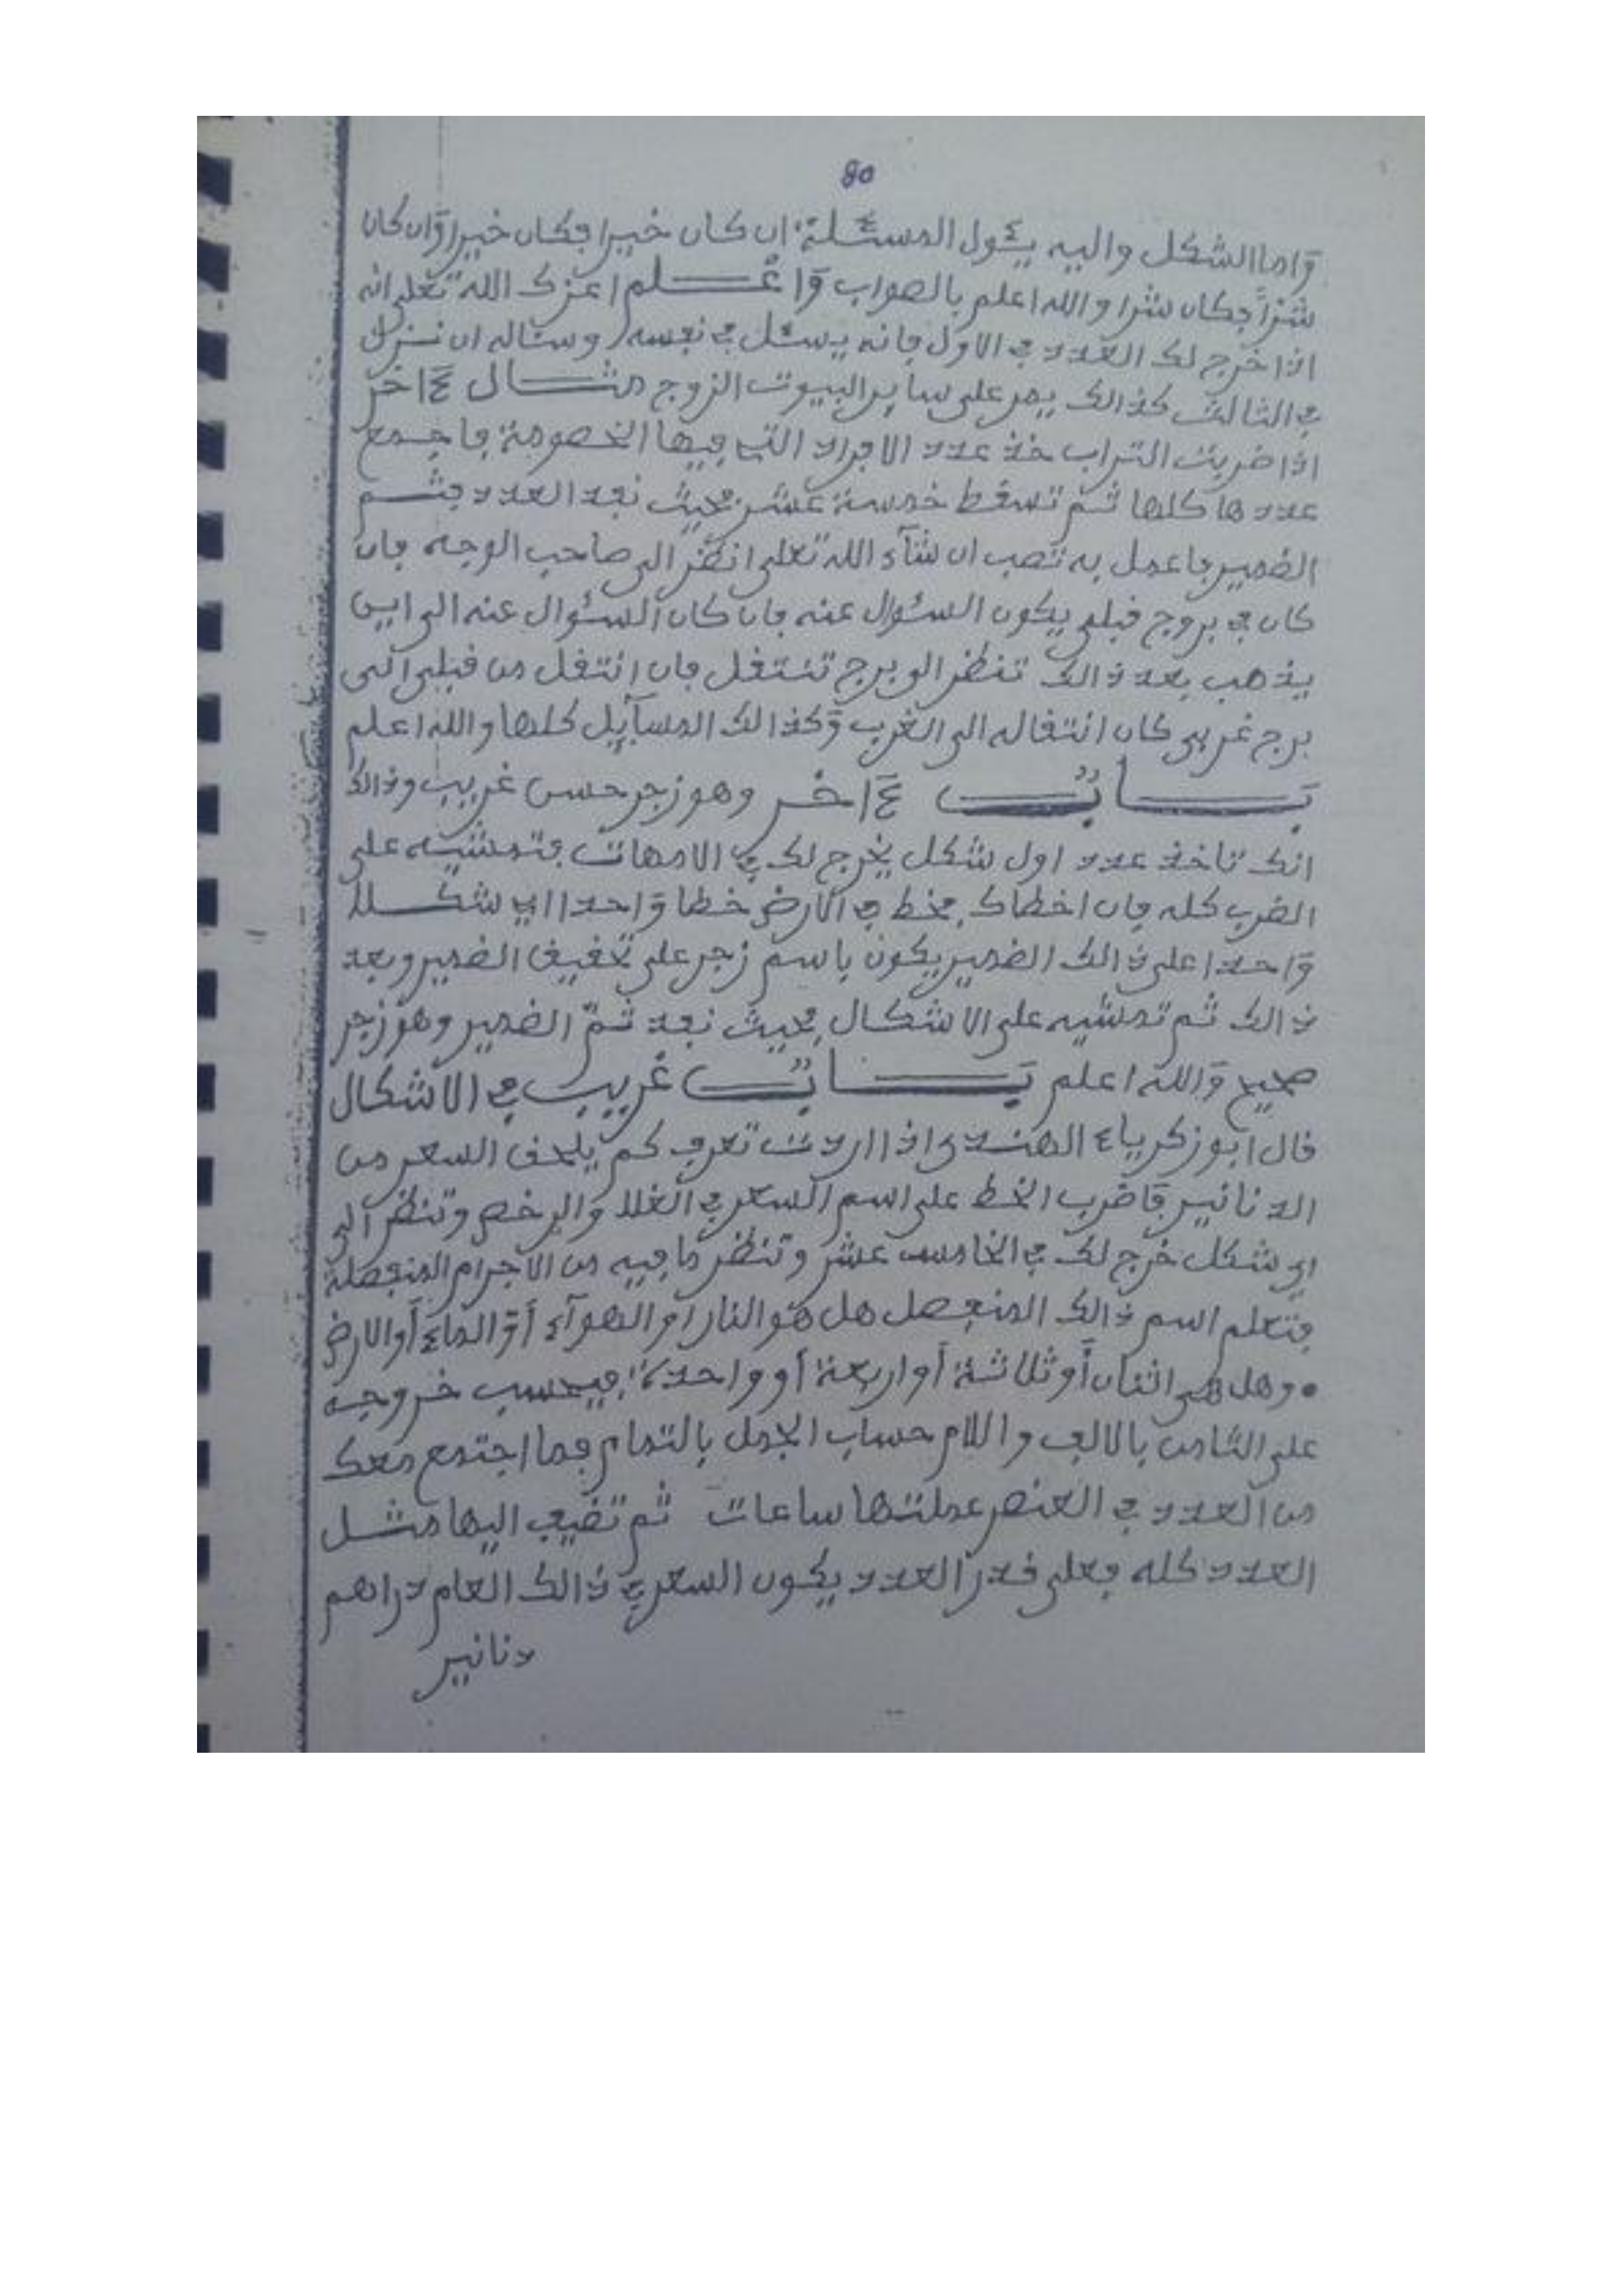 80
وَاما الشكل واليه يـُٔول المسئلة ان كان خيرا فكان خيرا وَان كان
شراً فكان شرا والله اعلم بالصواب وَاعْلم اعزك الله تعلى انه
اذا خرج لك العدد في الاول فانه يسئل في نفسه ومثاله ان نزل
في الثالث كذالك يمر على ساير البيوت الزوج مثال ءَاخر
اذا ضربت التراب خذ عدد الافراد التي فيها الخصومة فاجمع
عددها كلها ثم تسقط خمسة عشر فحيث نفد العدد فثم
الضمير فاعمل به تصب ان شآء الله تعلى انظر الى صاحب الوجه فان
كان في بروج قبلي يكون السئوال عنه فان كان السئوال عنه الى اين
يذهب بعد ذالك تنظر الى برج تنتقل فان انتقل من قبلي الى
برج غربي كان انتقاله الى الغرب وَكذالك المسآيل كلها والله اعلم
بَابٌ ءَاخر وهو زجر حسن غريب وذالك
انك تاخذ عدد اول شكل يخرج لك في الامهات فتمشيه على
الضرب كله فان اخطاك فخط في الارض خطا وَاحدا اي شكلا
وَاحدا على ذالك الضمير يكون باسم زجر على تحقيق الضمير وبعد
ذالك ثم تمشيه على الاشكال فحيث نفد ثمّ الضمير وهو زجر
صحيح وَالله اعلم بَابٌ غريب في الاشكال
قال ابو زكرياء الهندي اذا اردت تعرف كم يلحق السعر من
الدنانير فاضرب الخط على اسم السعر في الغلا والرخص وتنظر الى
اي شكل خرج لك في الخامس عشر وتنظر ما فيه من الاجرام المنفصلة
فتعلم اسم ذالك المنفصل هل هو النار أو الهوآء أَوْ الماء أَو الارض
• وهل هي اثنان أَو ثلاثة أَو اربعة أو واحدة فيحسب خروجه
على الثامن بالالف واللام حساب الجمل بالتمام فما اجتمع معك
من العدد في العنصر عملتها ساعات ثم تضيف اليها مثل
العدد كله فعلى قدر العدد يكون السعر في ذالك العام دراهم
دنانير